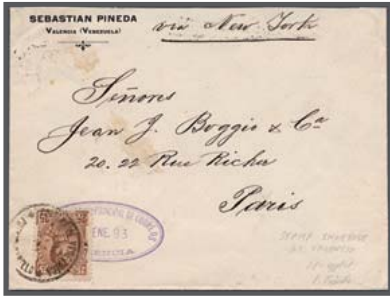 SEBASTIAN PINEDA
VALENCIA (VENEZUELA)
via New York
Señores
Jean J. Boggio & Cª
20. 22 Rue Richer
Paris
ENE. 93